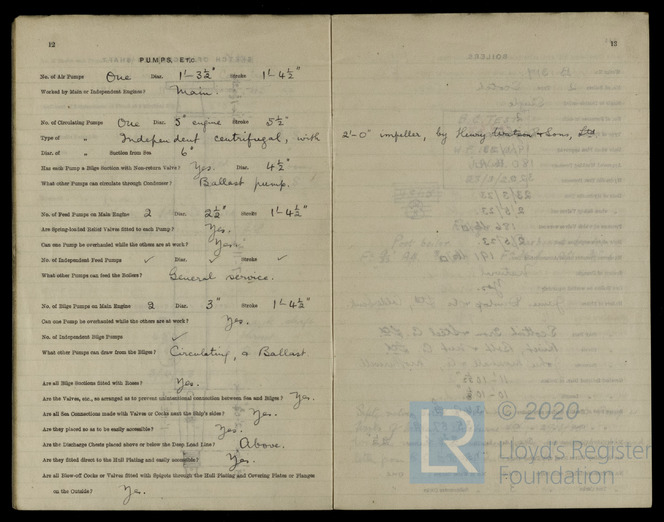 12
PUMPS, ETC.
No. of Air Pumps One Diar. 1'-3½" Stroke 1'-4½"
Worked by Main or Independent Engines? Main.
No. of Circulating Pumps One Diar. 5" engine Stroke 5½"
Type of " Independent centrifugal, with
Diar. of " Suction from Sea 6"
Has each Pump a Bilge Suction with Non-return Valve? Yes. Diar. 4½"
What other Pumps can circulate through Condenser? Ballast pump.
No. of Feed Pumps on Main Engine 2 Diar. 2½" Stroke 1'-4½"
Are Spring-loaded Relief Valves fitted to each Pump? Yes.
Can one Pump be overhauled while the others are at work? Yes.
No. of Independent Feed Pumps ✓ Diar. ✓ Stroke ✓
What other Pumps can feed the Boilers? General service.
No. of Bilge Pumps on Main Engine 2 Diar. 3" Stroke 1'-4½"
Can one Pump be overhauled while the others are at work? Yes.
No. of Independent Bilge Pumps ✓
What other Pumps can draw from the Bilges? Circulating, & Ballast
Are all Bilge Suctions fitted with Roses? Yes.
Are the Valves, etc., so arranged as to prevent unintentional connection between Sea and Bilges? Yes.
Are all Sea Connections made with Valves or Cocks next the Ship's sides? Yes.
Are they placed so as to be easily accessible? Yes.
Are the Discharge Chests placed above or below the Deep Load Line? Above.
Are they fitted direct to the Hull Plating and easily accessible? Yes.
Are all Blow-off Cocks or Valves fitted with Spigots through the Hull Plating and Covering Plates or Flanges
on the Outside? Yes.
13
2'-0" impeller, by Henry & Sons, Ltd
LR
© 2020
Lloyd's Register
Foundation